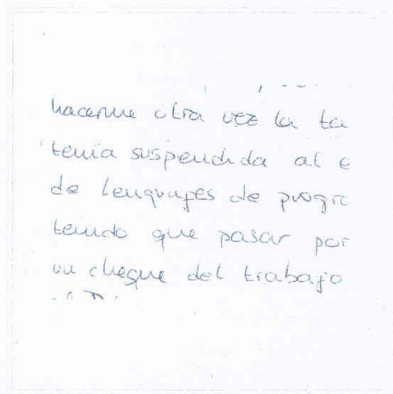 hacerme otra vez la ta
tenía suspendida al e
de lenguajes de progra
tenido que pasar por
un cheque del trabajo